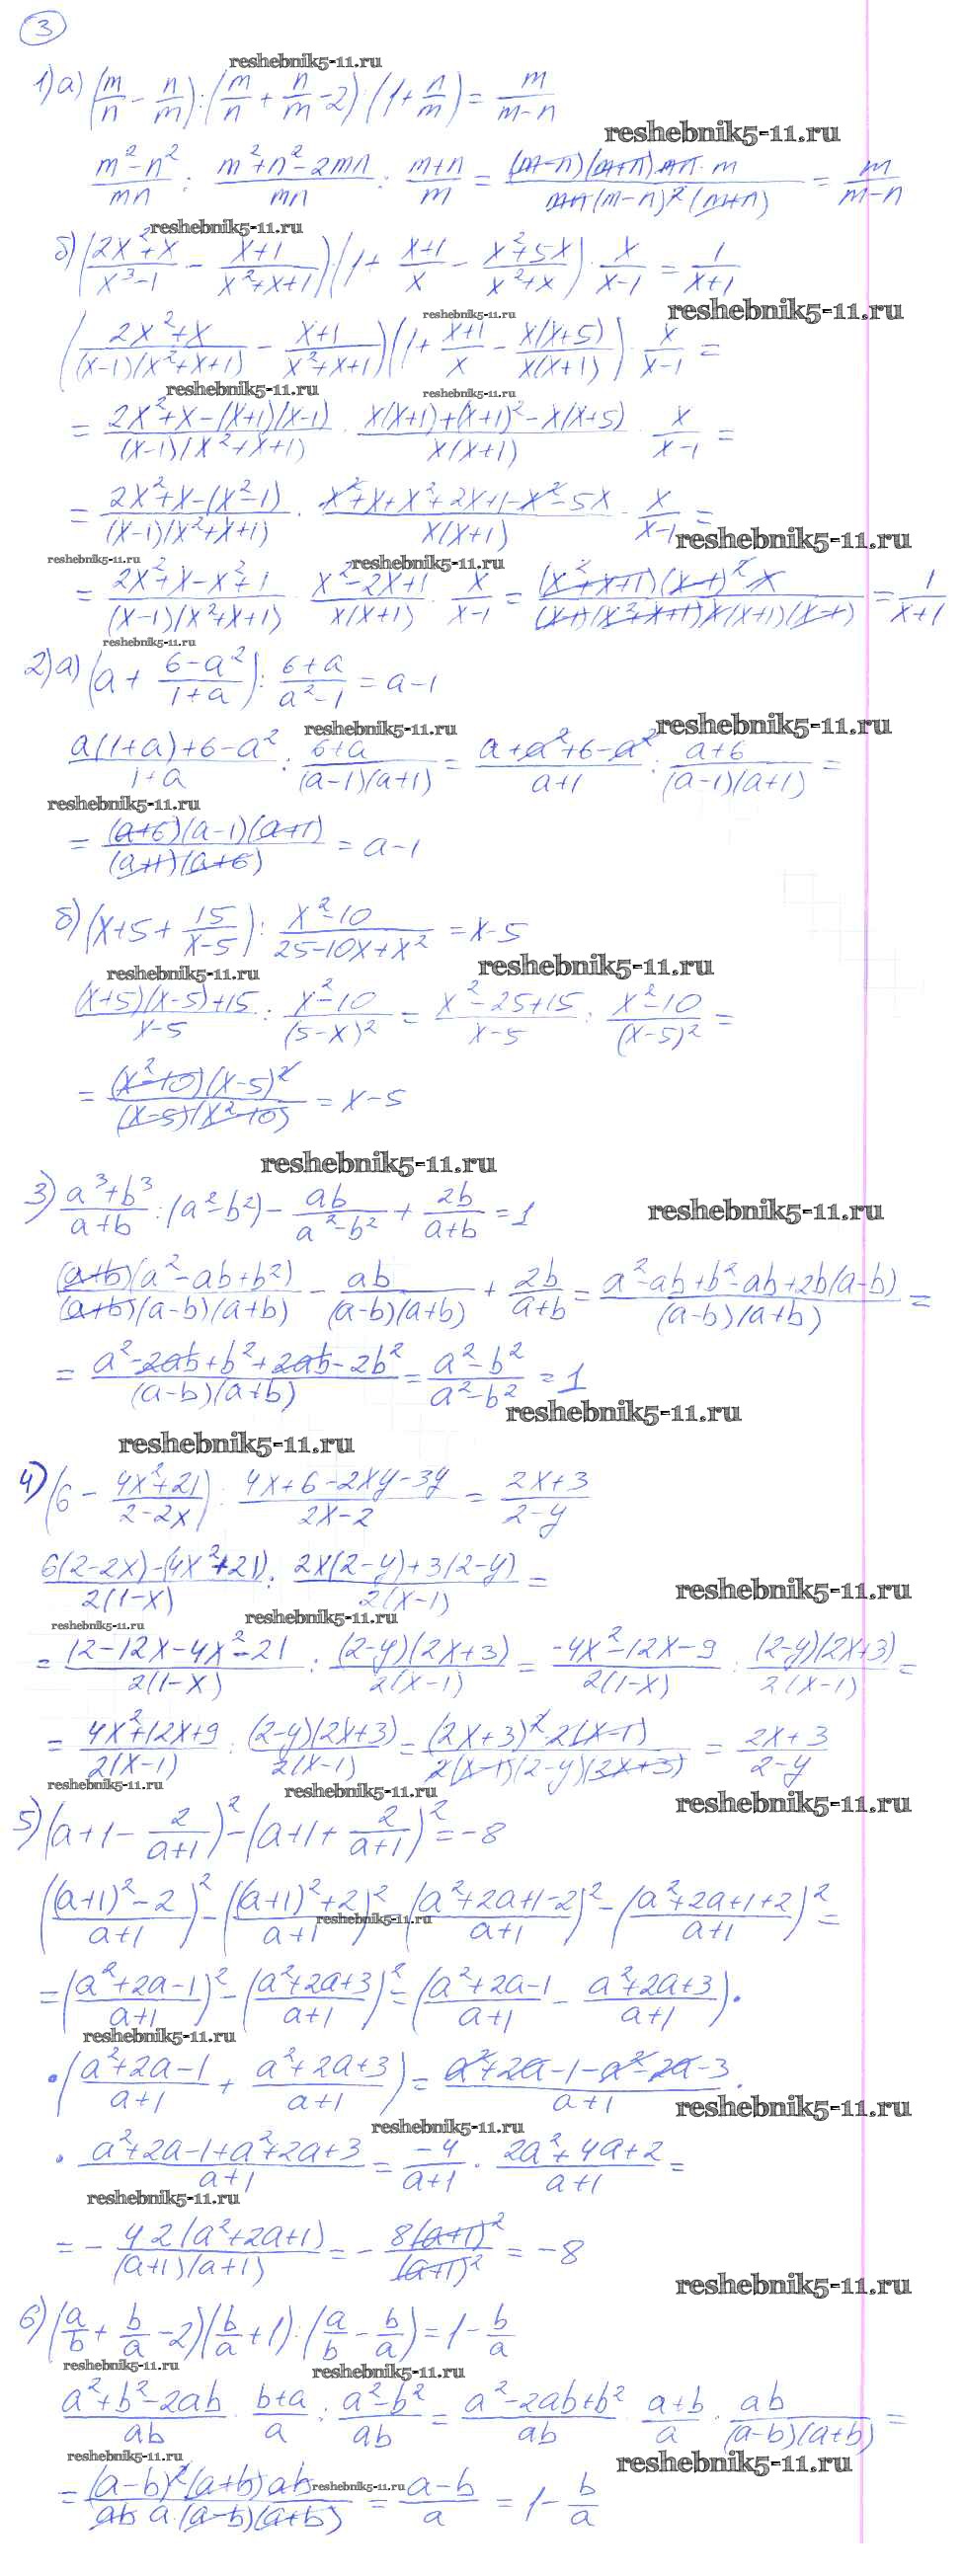 3
reshebnik5-11.ru
1) а) (m/n - n/m) : (m/n + n/m - 2) : (1 + n/m) = m/(m-n)
reshebnik5-11.ru
(m²-n²)/(mn) : (m²+n²-2mn)/(mn) : (m+n)/m = ((m-n)(m+n) mn · m)/(mn(m-n)²(m+n)) = m/(m-n)
reshebnik5-11.ru
б) ((2x²+x)/(x³-1) - (x+1)/(x²+x+1)) (1 + (x+1)/x - (x²+5x)/(x²+x)) · x/(x-1) = 1/(x+1)
reshebnik5-11.ru
reshebnik5-11.ru
((2x²+x)/((x-1)(x²+x+1)) - (x+1)/(x²+x+1)) (1 + (x+1)/x - (x(x+5))/(x(x+1))) · x/(x-1) =
reshebnik5-11.ru
reshebnik5-11.ru
= (2x²+x-(x+1)(x-1))/((x-1)(x²+x+1)) · (x(x+1)+(x+1)²-x(x+5))/(x(x+1)) · x/(x-1) =
= (2x²+x-(x²-1))/((x-1)(x²+x+1)) · (x²+x+x²+2x+1-x²-5x)/(x(x+1)) · x/(x-1) =
reshebnik5-11.ru
reshebnik5-11.ru
reshebnik5-11.ru
= (2x²+x-x²+1)/((x-1)(x²+x+1)) · (x²-2x+1)/(x(x+1)) · x/(x-1) = ((x²+x+1)(x-1)² x)/((x-1)(x²+x+1)x(x+1)(x-1)) = 1/(x+1)
reshebnik5-11.ru
2) а) (a + (6-a²)/(1+a)) : (6+a)/(a²-1) = a-1
reshebnik5-11.ru
reshebnik5-11.ru
(a(1+a)+6-a²)/(1+a) : (6+a)/((a-1)(a+1)) = (a+a²+6-a²)/(a+1) : (a+6)/((a-1)(a+1)) =
reshebnik5-11.ru
= ((a+6)(a-1)(a+1))/((a+1)(a+6)) = a-1
б) (x+5+15/(x-5)) : (x²-10)/(25-10x+x²) = x-5
reshebnik5-11.ru
reshebnik5-11.ru
((x+5)(x-5)+15)/(x-5) : (x²-10)/((5-x)²) = (x²-25+15)/(x-5) : (x²-10)/((x-5)²) =
= ((x²-10)(x-5)²)/((x-5)(x²-10)) = x-5
reshebnik5-11.ru
3) (a³+b³)/(a+b) : (a²-b²) - ab/(a²-b²) + 2b/(a+b) = 1
reshebnik5-11.ru
((a+b)(a²-ab+b²))/((a+b)(a-b)(a+b)) - ab/((a-b)(a+b)) + 2b/(a+b) = (a²-ab+b²-ab+2b(a-b))/((a-b)(a+b)) =
= (a²-2ab+b²+2ab-2b²)/((a-b)(a+b)) = (a²-b²)/(a²-b²) = 1
reshebnik5-11.ru
reshebnik5-11.ru
4) (6 - (4x²+21)/(2-2x)) : (4x+6-2xy-3y)/(2x-2) = (2x+3)/(2-y)
(6(2-2x)-(4x²+21))/(2(1-x)) : (2x(2-y)+3(2-y))/(2(x-1)) =
reshebnik5-11.ru
reshebnik5-11.ru
reshebnik5-11.ru
= (12-12x-4x²-21)/(2(1-x)) : ((2-y)(2x+3))/(2(x-1)) = (-4x²-12x-9)/(2(1-x)) : ((2-y)(2x+3))/(2(x-1)) =
= (4x²+12x+9)/(2(x-1)) : ((2-y)(2x+3))/(2(x-1)) = ((2x+3)² 2(x-1))/(2(x-1)(2-y)(2x+3)) = (2x+3)/(2-y)
reshebnik5-11.ru
reshebnik5-11.ru
reshebnik5-11.ru
5) (a+1 - 2/(a+1))² - (a+1 + 2/(a+1))² = -8
(((a+1)²-2)/(a+1))² - (((a+1)²+2)/(a+1))² = ((a²+2a+1-2)/(a+1))² - ((a²+2a+1+2)/(a+1))² =
reshebnik5-11.ru
= ((a²+2a-1)/(a+1))² - ((a²+2a+3)/(a+1))² = ((a²+2a-1)/(a+1) - (a²+2a+3)/(a+1)) ·
reshebnik5-11.ru
· ((a²+2a-1)/(a+1) + (a²+2a+3)/(a+1)) = (a²+2a-1-a²-2a-3)/(a+1) ·
reshebnik5-11.ru
reshebnik5-11.ru
· (a²+2a-1+a²+2a+3)/(a+1) = -4/(a+1) · (2a²+4a+2)/(a+1) =
reshebnik5-11.ru
= - (4 2(a²+2a+1))/((a+1)(a+1)) = - (8(a+1)²)/((a+1)²) = -8
reshebnik5-11.ru
6) (a/b + b/a - 2)(b/a + 1) : (a/b - b/a) = 1 - b/a
reshebnik5-11.ru
reshebnik5-11.ru
(a²+b²-2ab)/(ab) · (b+a)/a : (a²-b²)/(ab) = (a²-2ab+b²)/(ab) · (a+b)/a · ab/((a-b)(a+b)) =
reshebnik5-11.ru
reshebnik5-11.ru
reshebnik5-11.ru
= ((a-b)²(a+b) ab)/(ab a·(a-b)(a+b)) = (a-b)/a = 1 - b/a